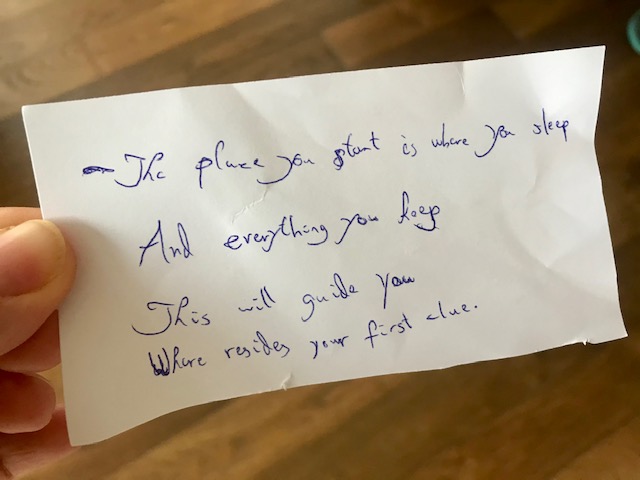 - The place you start is where you sleep
And everything you keep
This will guide you
Where resides your first clue.